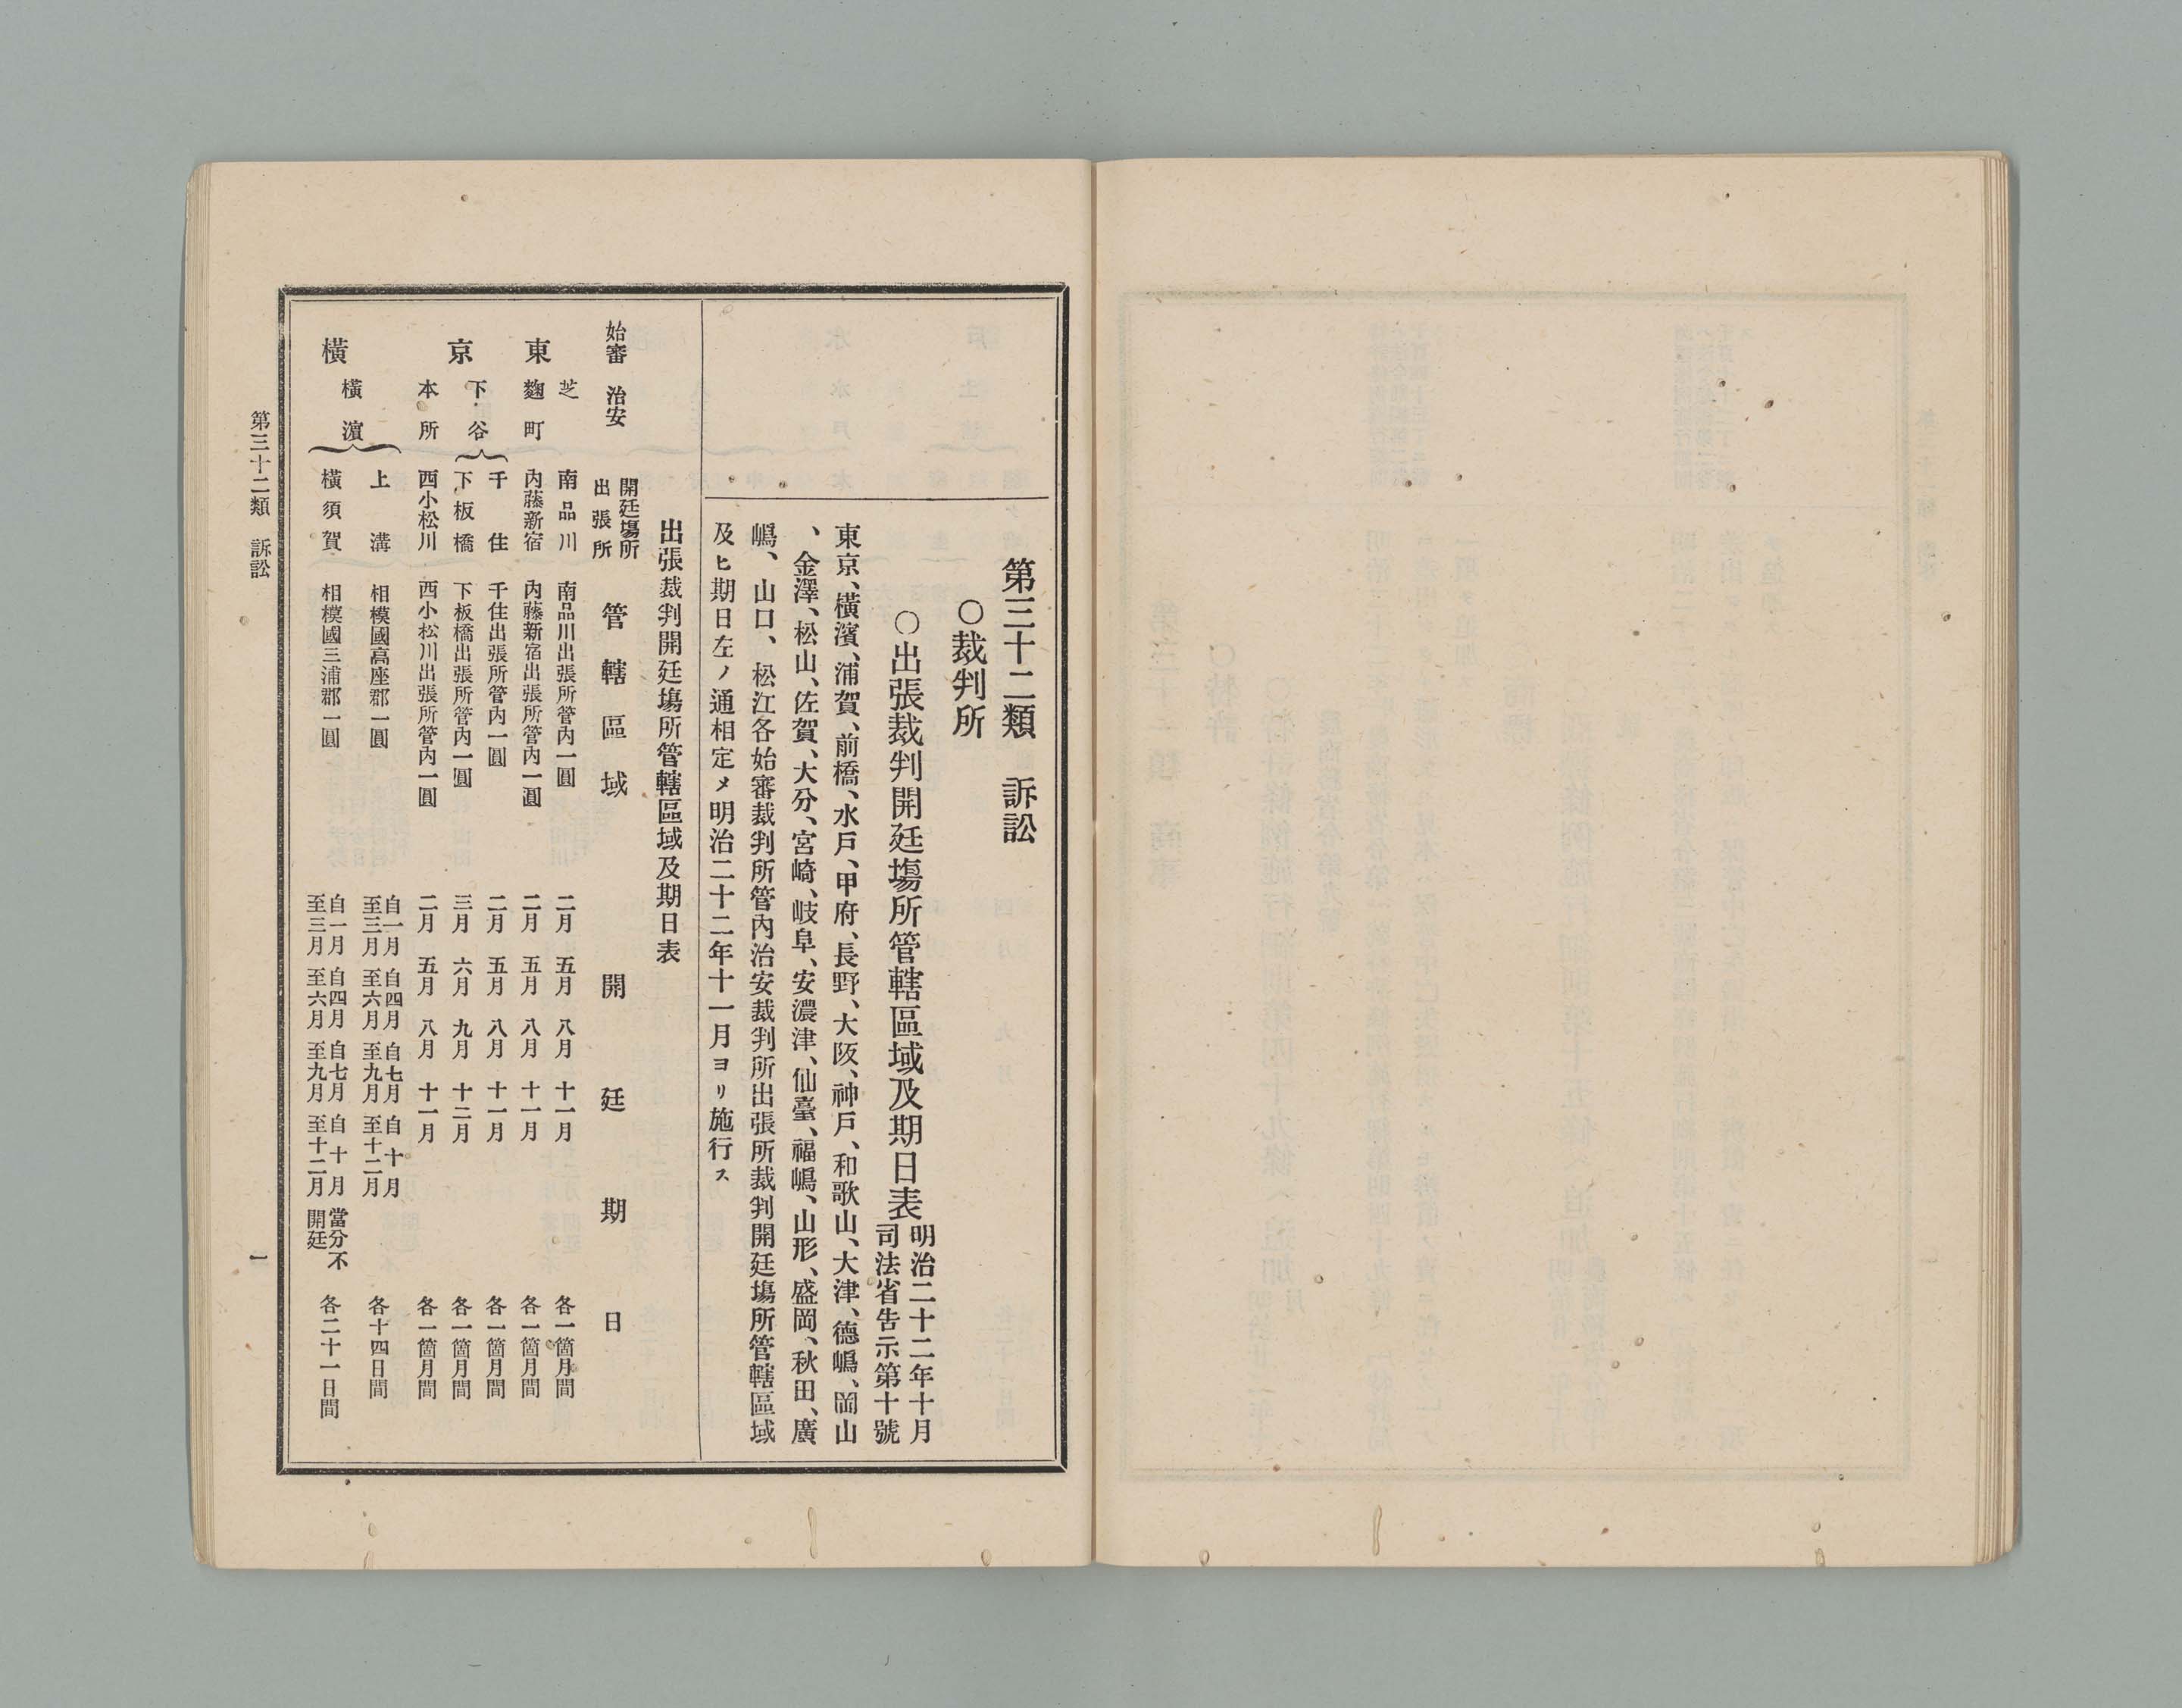 第三十二類　訴訟
○裁判所
○出張裁判開廷塲所管轄區域及期日表
明治二十二年十月
司法省告示第十號
東京、橫濱、浦賀、前橋、水戶、甲府、長野、大阪、神戶、和歌山、大津、德嶋、岡山
、金澤、松山、佐賀、大分、宮崎、岐阜、安濃津、仙臺、福嶋、山形、盛岡、秋田、廣
嶋、山口、松江各始審裁判所管內治安裁判所出張所裁判開廷塲所管轄區域
及ヒ期日左ノ通相定メ明治二十二年十一月ヨリ施行ス
出張裁判開廷塲所管轄區域及期日表
始審　治安　開廷塲所出張所　管轄區域　開廷期日
芝　南品川　南品川出張所管內一圓　二月　五月　八月　十一月　各一箇月間
東　麴町　內藤新宿　內藤新宿出張所管內一圓　二月　五月　八月　十一月　各一箇月間
千住　千住出張所管內一圓　二月　五月　八月　十一月　各一箇月間
京　下谷　下板橋　下板橋出張所管內一圓　三月　六月　九月　十二月　各一箇月間
本所　西小松川　西小松川出張所管內一圓　二月　五月　八月　十一月　各一箇月間
上溝　相模國高座郡一圓　自一月至三月　自四月至六月　自七月至九月　自十月至十二月　各十四日間
橫　橫濱　橫須賀　相模國三浦郡一圓　自一月至三月　自四月至六月　自七月至九月　自十月至十二月　當分不開廷　各二十一日間
第三十二類　訴訟　一